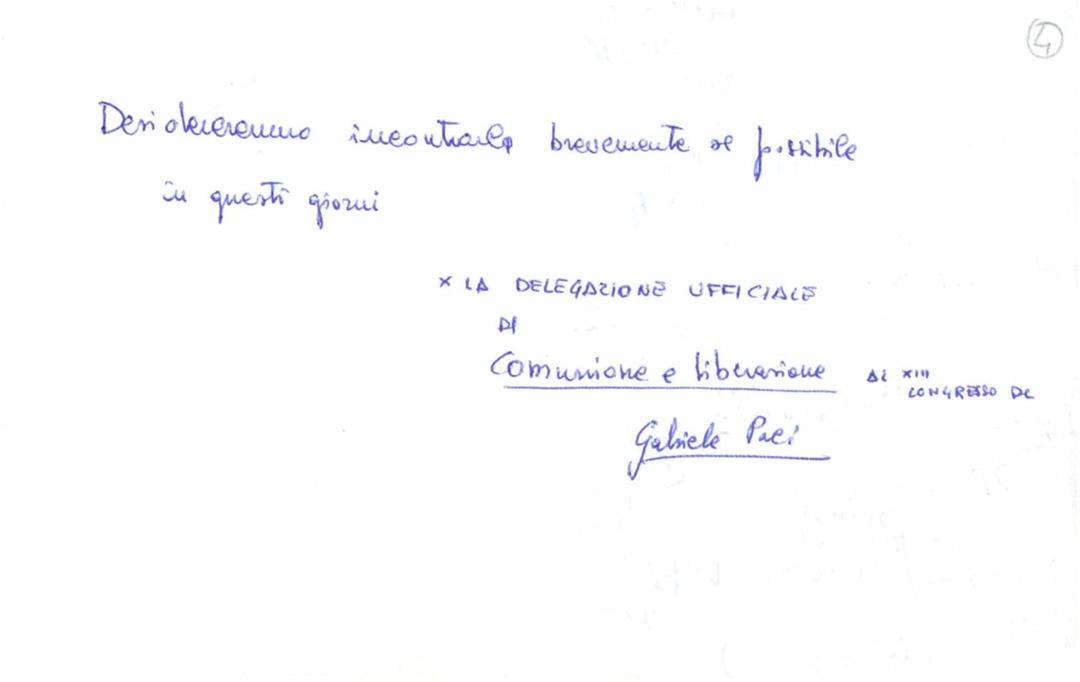 4
Desidereremmo incontrarla brevemente se possibile
in questi giorni
x LA DELEGAZIONE UFFICIALE
DI
Comunione e liberazione AL XIII
CONGRESSO DC
Gabriele Paci